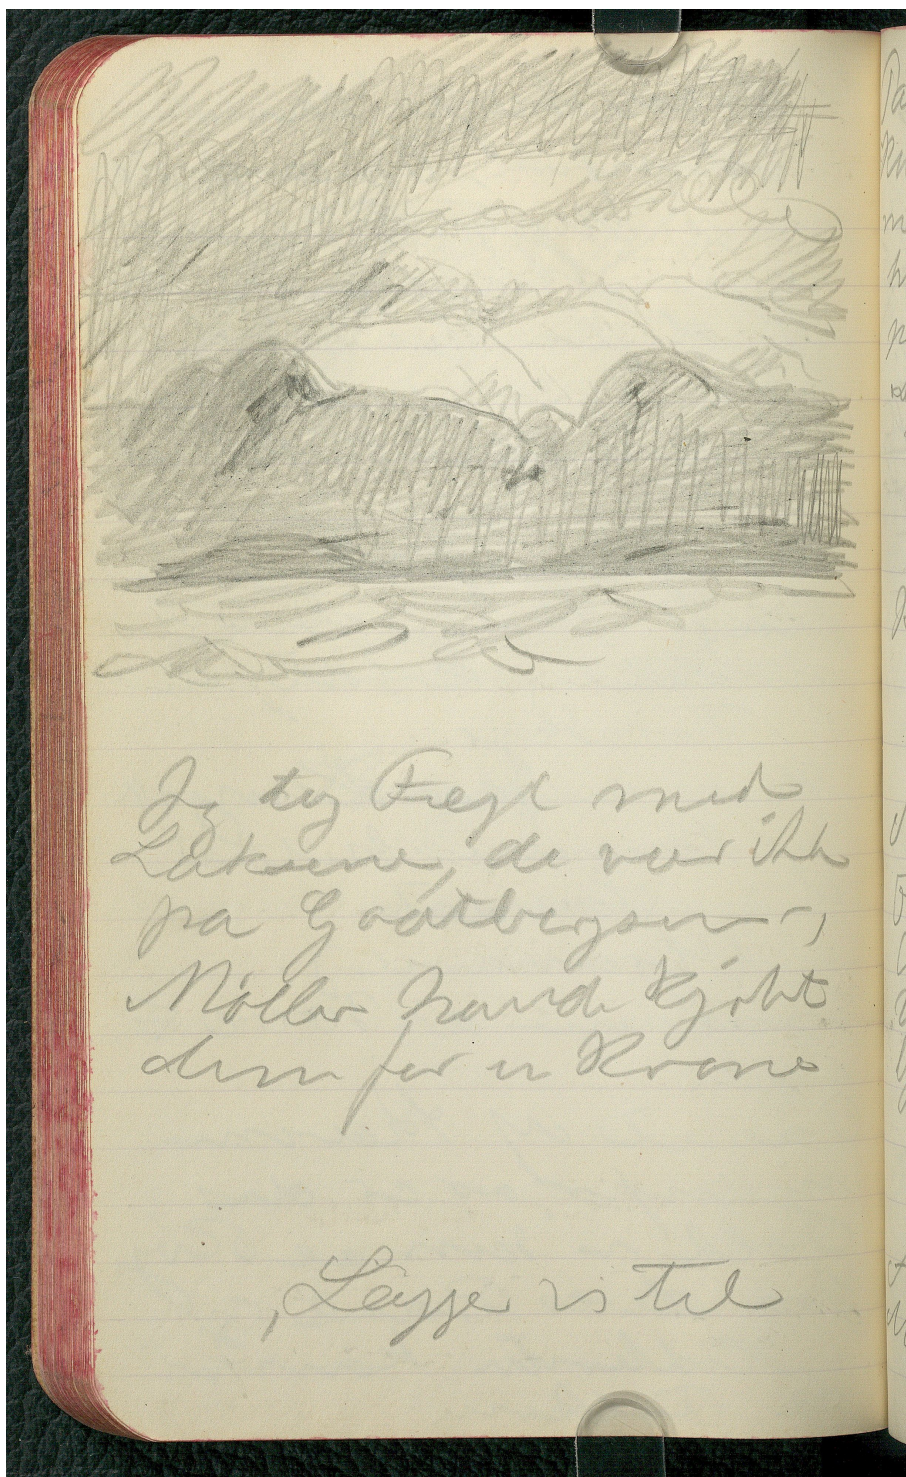 Jeg tog Fregl med
Laksene, de var ikke
paa Godtbergsen –,
Møller havde kjøbt
dem for en Krone
"Lægge vi til